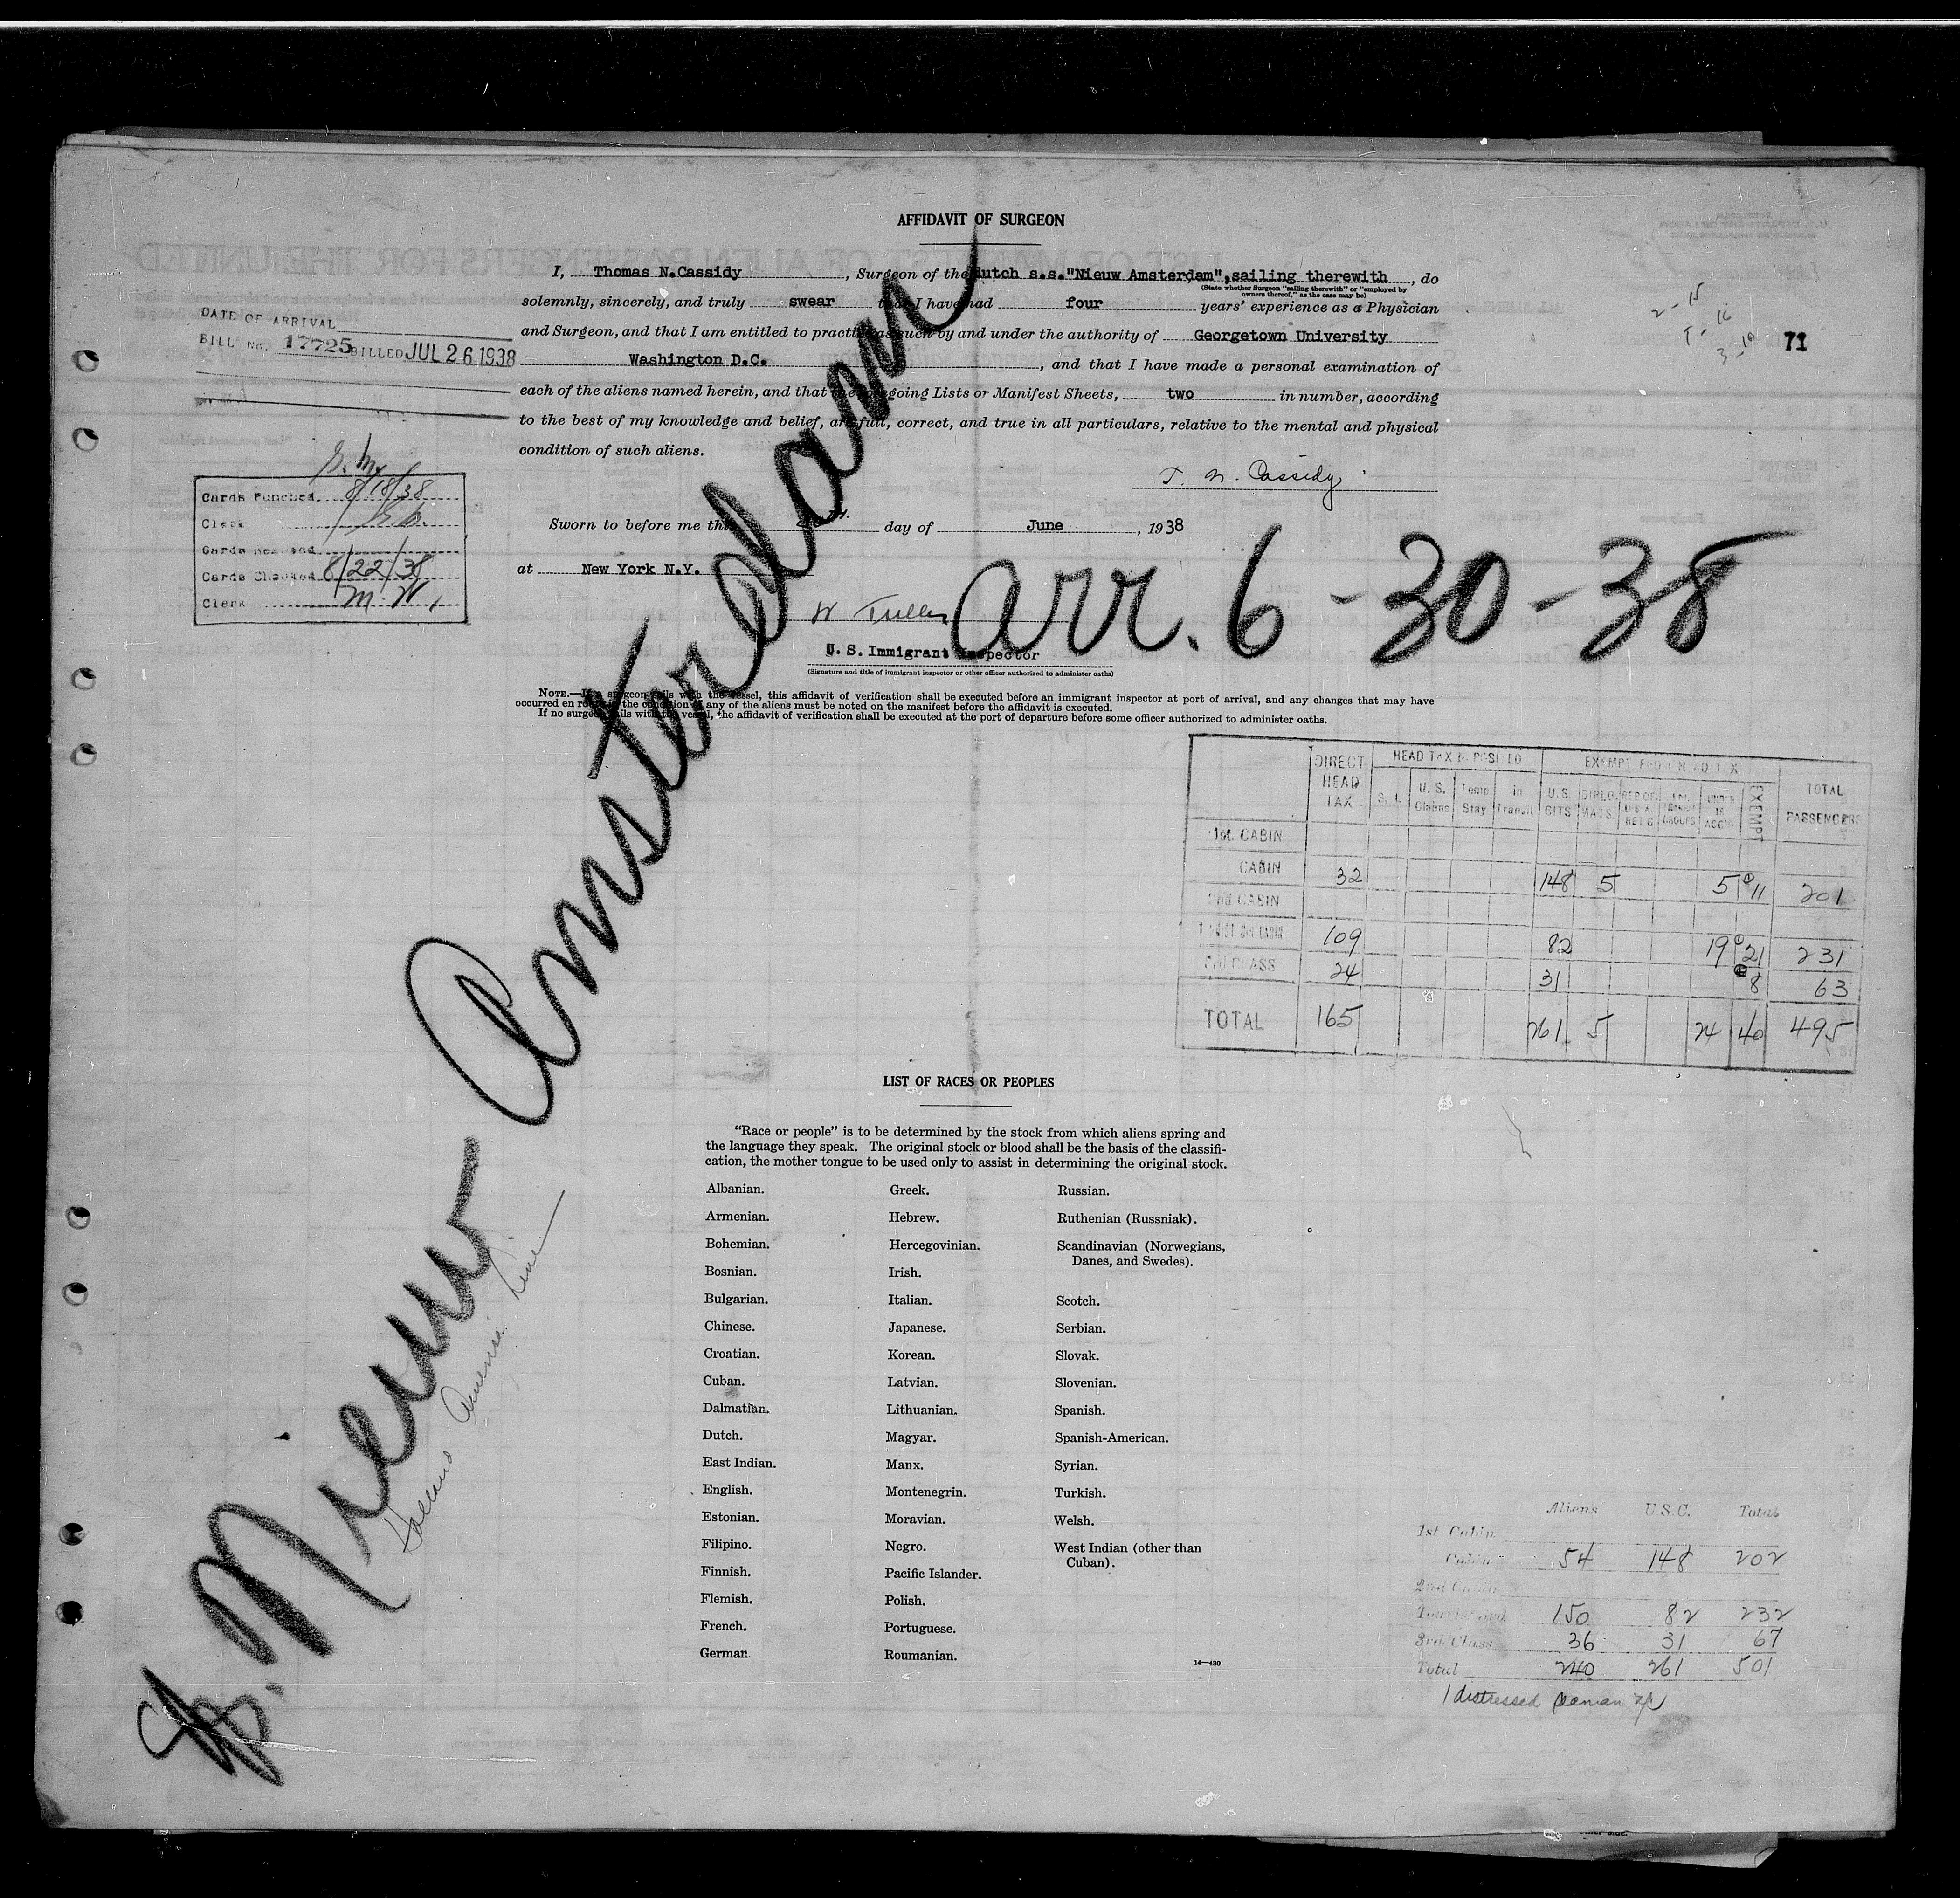 AFFIDAVIT OF SURGEON
I, Thomas N.Cassidy, Surgeon of the dutch s.s."Nieuw Amsterdam",sailing therewith, do
(State whether Surgeon "sailing therewith" or "employed by
owners thereof," as the case may be)
solemnly, sincerely, and truly swear that I have had four years' experience as a Physician
and Surgeon, and that I am entitled to practice as such by and under the authority of Georgetown University
Washington D.C., and that I have made a personal examination of
each of the aliens named herein, and that the foregoing Lists or Manifest Sheets, two in number, according
to the best of my knowledge and belief, are full, correct, and true in all particulars, relative to the mental and physical
condition of such aliens.
T. N. Cassidy
Sworn to before me this day of June, 1938
at New York N.Y.
U.S. Immigrant Inspector
(Signature and title of immigrant inspector or other officer authorized to administer oaths)
NOTE.—If a surgeon sails with the vessel, this affidavit of verification shall be executed before an immigrant inspector at port of arrival, and any changes that may have
occurred en route in the condition of any of the aliens must be noted on the manifest before the affidavit is executed.
If no surgeon sails with the vessel, the affidavit of verification shall be executed at the port of departure before some officer authorized to administer oaths.
DATE OF ARRIVAL
BILL NO. 17725 BILLED JUL 26 1938
71
2 - 15
T - 16
3 - 10
Cards Punched 8/18/38
Clerk
Cards Checked 8/22/38
Clerk M.W.
arr. 6-30-38
Nieuw Amsterdam
Holland America Line
DIRECT HEAD TAX
HEAD TAX DEPOSITED
EXEMPT FROM HEAD TAX
TOTAL PASSENGERS
S.I. U.S. Claims Temp Stay in Transit U.S. CITS DIPLOMATS UNDER 16 ACC'D EXEMPT
1st. CABIN
CABIN 32 148 5 5 11 201
2nd CABIN
TOURIST 3rd CABIN 109 82 19 21 231
3rd CLASS 24 31 8 63
TOTAL 165 261 5 24 40 495
LIST OF RACES OR PEOPLES
"Race or people" is to be determined by the stock from which aliens spring and
the language they speak. The original stock or blood shall be the basis of the classifi-
cation, the mother tongue to be used only to assist in determining the original stock.
Albanian.
Armenian.
Bohemian.
Bosnian.
Bulgarian.
Chinese.
Croatian.
Cuban.
Dalmatian.
Dutch.
East Indian.
English.
Estonian.
Filipino.
Finnish.
Flemish.
French.
German.
Greek.
Hebrew.
Hercegovinian.
Irish.
Italian.
Japanese.
Korean.
Latvian.
Lithuanian.
Magyar.
Manx.
Montenegrin.
Moravian.
Negro.
Pacific Islander.
Polish.
Portuguese.
Roumanian.
Russian.
Ruthenian (Russniak).
Scandinavian (Norwegians,
Danes, and Swedes).
Scotch.
Serbian.
Slovak.
Slovenian.
Spanish.
Spanish-American.
Syrian.
Turkish.
Welsh.
West Indian (other than
Cuban).
14—430
Aliens U.S.C. Total
1st Cabin
Cabin 54 148 202
2nd Cabin
Tourist 3rd 150 82 232
3rd Class 36 31 67
Total 240 261 501
1 distressed seaman